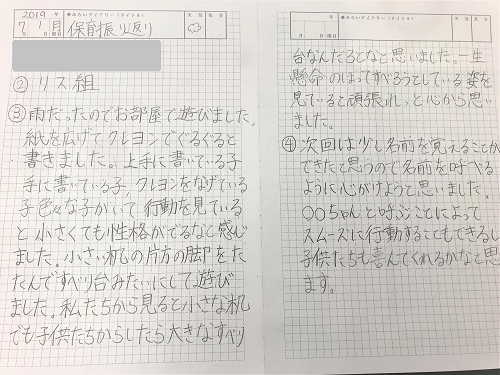 2019 ◆みらいダイアリー(タイトル) 天気 気温
7月1日 月曜日 保育振り返り
② リス組
③ 雨だったのでお部屋で遊びました。
紙を広げてクレヨンでぐるぐると
書きました。上手に書いている子
手に書いている子、クレヨンをなげている
子色々な子がいて行動を見ている
と小さくても性格がでるなと感じ
ました。小さい机の片方の脚をた
たんですべり台みたいにして遊び
ました。私たちから見ると小さな机
でも子供たちからしたら大きなすべり
◆みらいダイアリー(タイトル) 天気 気温
月 日 曜日
台なんだろなと思いました。一生
懸命のぼってすべろうとしている姿を
見ていると頑張れっと心から思い
ました。
④ 次回は少し名前を覚えることが
できたと思うので名前を呼べる
ように心がけようと思いました。
〇〇ちゃんと呼ぶことによって
スムーズに行動することもできるし
子供たちも喜んでくれるかなと思い
ます。